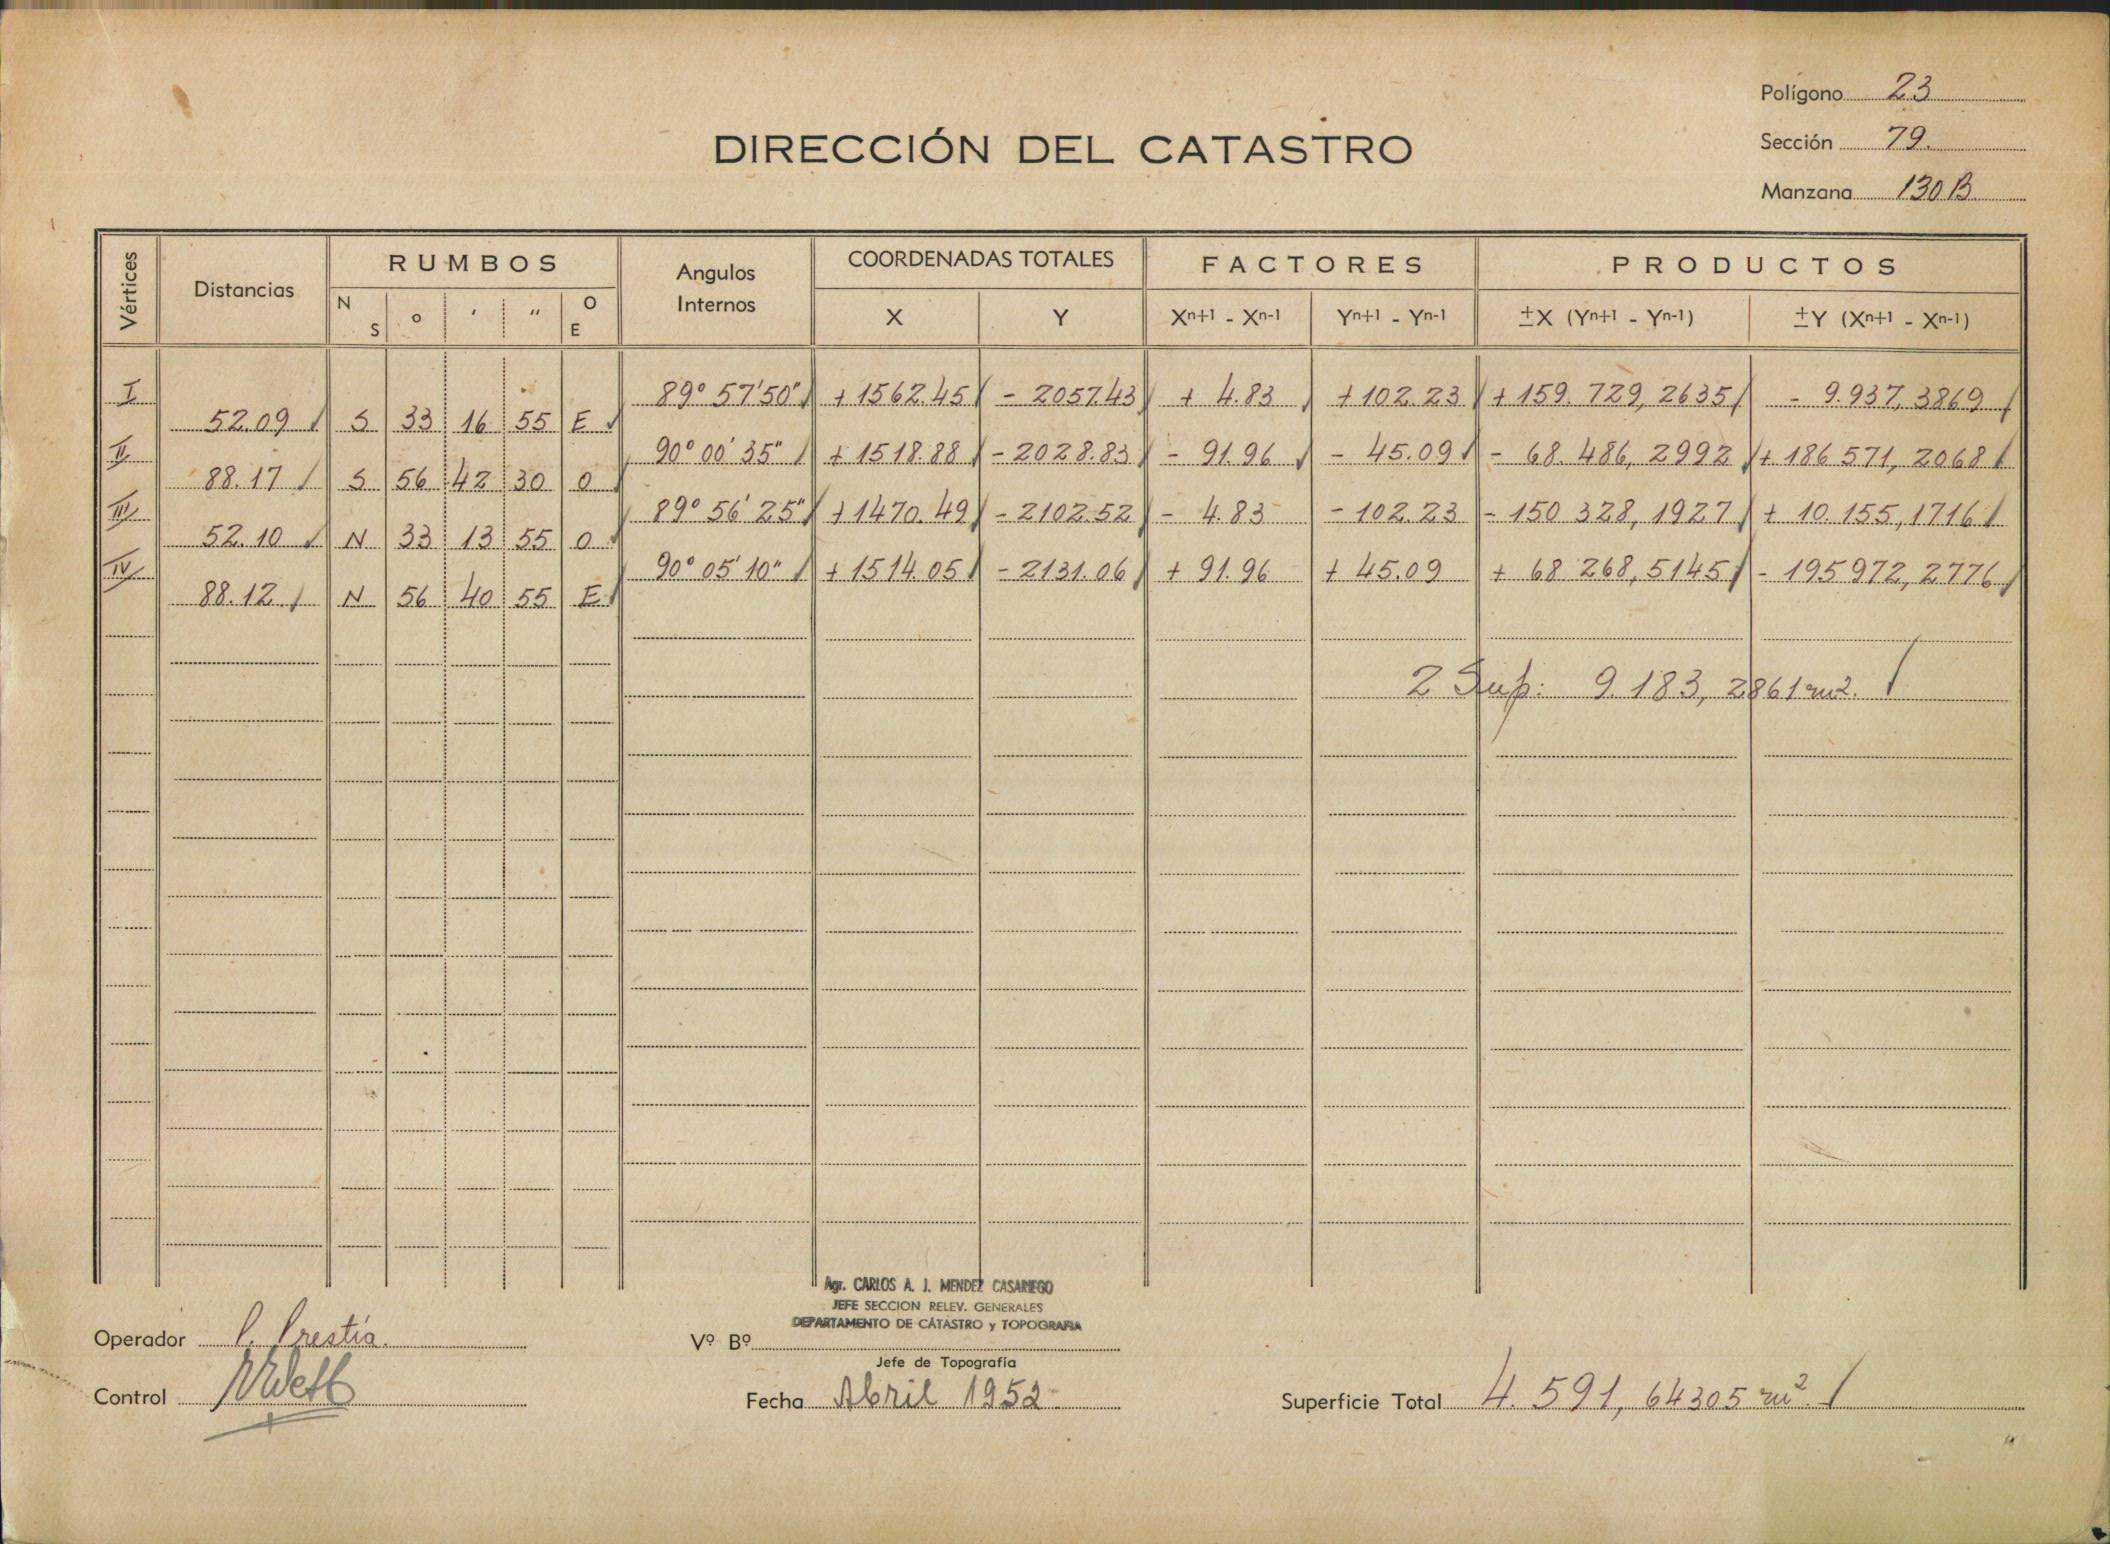 Polígono 23
Sección 79.
Manzana 130B.
DIRECCIÓN DEL CATASTRO
Vértices Distancias RUMBOS Angulos Internos COORDENADAS TOTALES FACTORES PRODUCTOS
N S o ' " O E X Y Xn+1 - Xn-1 Yn+1 - Yn-1 ±X (Yn+1 - Yn-1) ±Y (Xn+1 - Xn-1)
I 89° 57' 50" + 1562.45 - 2057.43 + 4.83 + 102.23 + 159.729,2635 - 9.937,3869
52.09 S 33 16 55 E
II 90° 00' 35" + 1518.88 - 2028.83 - 91.96 - 45.09 - 68.486,2992 + 186 571,2068
88.17 S 56 42 30 O
III 89° 56' 25" + 1470.49 - 2102.52 - 4.83 - 102.23 - 150 328,1927 + 10.155,1716
52.10 N 33 13 55 O
IV 90° 05' 10" + 1514.05 - 2131.06 + 91.96 + 45.09 + 68 268,5145 - 195 972,2776
88.12 N 56 40 55 E
2 Sup: 9.183,2861 m2.
Agr. CARLOS A. J. MENDEZ CASARIEGO
JEFE SECCION RELEV. GENERALES
DEPARTAMENTO DE CATASTRO y TOPOGRAFIA
Operador P. Prestía.
Vº Bº
Jefe de Topografía
Control
Fecha Abril 1952
Superficie Total 4.591,64305 m2.